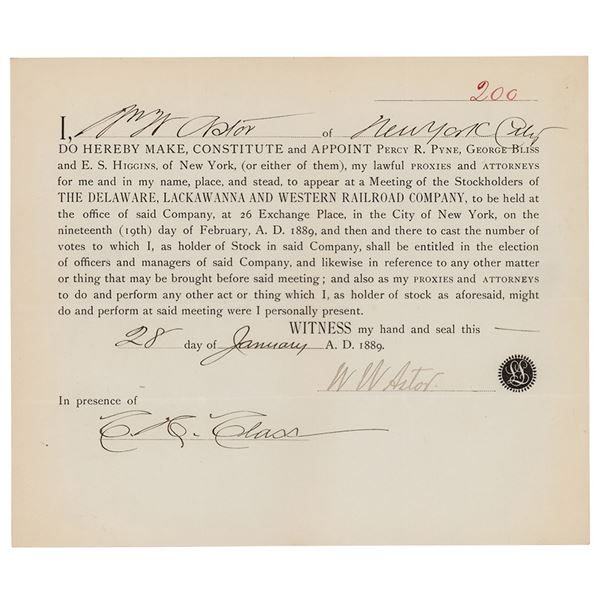 200
I, Wm W Astor of New York City
DO HEREBY MAKE, CONSTITUTE and APPOINT PERCY R. PYNE, GEORGE BLISS
and E. S. HIGGINS, of New York, (or either of them), my lawful PROXIES and ATTORNEYS
for me and in my name, place, and stead, to appear at a Meeting of the Stockholders of
THE DELAWARE, LACKAWANNA AND WESTERN RAILROAD COMPANY, to be held at
the office of said Company, at 26 Exchange Place, in the City of New York, on the
nineteenth (19th) day of February, A. D. 1889, and then and there to cast the number of
votes to which I, as holder of Stock in said Company, shall be entitled in the election
of officers and managers of said Company, and likewise in reference to any other matter
or thing that may be brought before said meeting; and also as my PROXIES and ATTORNEYS
to do and perform any other act or thing which I, as holder of stock as aforesaid, might
do and perform at said meeting were I personally present.
WITNESS my hand and seal this
28 day of January A. D. 1889.
W W Astor
LS
In presence of